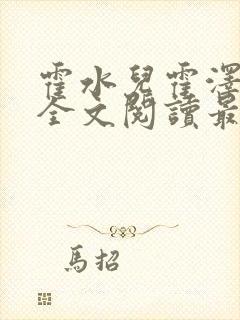 霍水兒霍澤
全文閱讀最
馬招